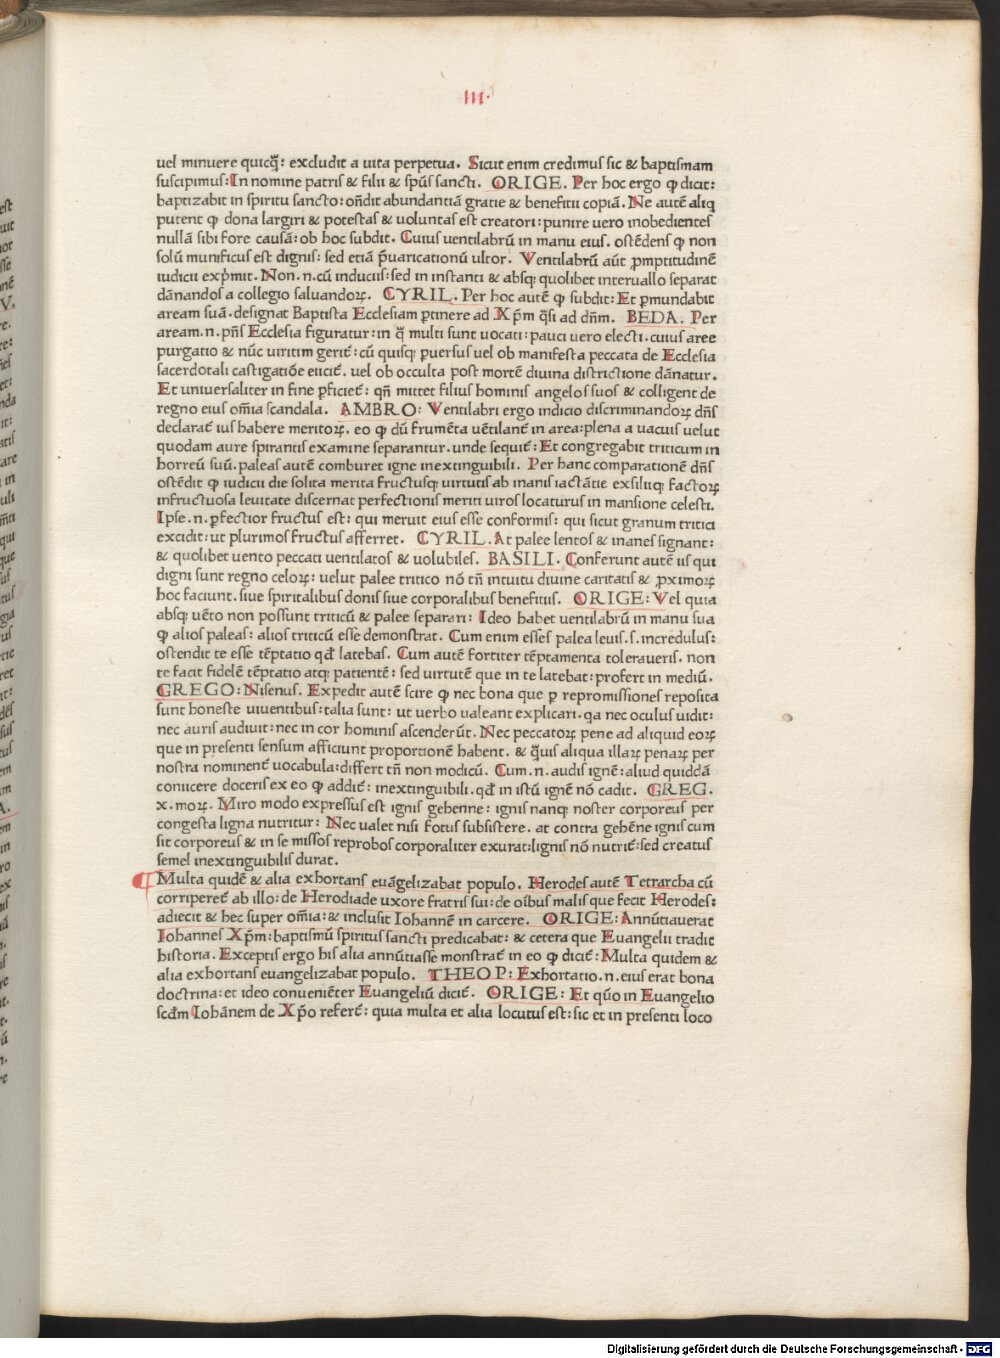 III.
uel minuere quicq̄: excludit a uita perpetua. Sicut enim credimus sic & baptismam
suscipimus: In nomine patris & filii & spūs sancti. ORIGE. Per hoc ergo ꝙ dicit:
baptizabit in spiritu sancto: oñdit abundantiā gratie & beneficii copiā. Ne autē aliq
putent ꝙ dona largiri & potestas & uoluntas est creatori: punire uero inobedientes
nullā sibi fore causā: ob hoc subdit. Cuius uentilabrū in manu eius. ostēdens ꝙ non
solū munificus est dignis: sed etiā p̄uaricationū ultor. Ventilabrū aūt ꝓmptitudinē
iudicii exp̄mit. Non .n. cū induciis: sed in instanti & absq; quolibet interuallo separat
dānandos a collegio saluandoꝝ. CYRIL. Per hoc autē ꝙ subdit: Et ꝑmundabit
aream suā. designat Baptista Ecclesiam ꝑtinere ad Xp̄m q̄si ad dn̄m. BEDA. Per
aream .n. pn̄s Ecclesia figuratur: in q̄ multi sunt uocati: pauci uero electi. cuius aree
purgatio & nūc uiritim gerit̄: cū quisq; ꝑuersus uel ob manifesta peccata de Ecclesia
sacerdotali castigatiōe eiicit̄. uel ob occulta post mortē diuina districtione dānatur.
Et uniuersaliter in fine ꝑficiet̄: qn̄ mittet filius hominis angelos suos & colligent de
regno eius om̄ia scandala. AMBRO: Ventilabri ergo indicio discriminandoꝝ dn̄s
declarat̄ ius habere meritoꝝ. eo ꝙ dū frumēta uētilant̄ in area: plena a uacuis uelut
quodam aure spirantis examine separantur. unde sequit̄: Et congregabit triticum in
horreū suū. paleas autē comburet igne inextinguibili. Per hanc comparationē dn̄s
ostēdit ꝙ iudicii die solita merita fructusq; uirtutis ab inanis iactātie exsiliq; factoꝝ
infructuosa leuitate discernat perfectionis meriti uiros locaturus in mansione celesti.
Ipse .n. ꝑfectior fructus est: qui meruit eius esse conformis: qui sicut granum tritici
excidit: ut plurimos fructus afferret. CYRIL. At palee lentos & inanes signant:
& quolibet uento peccati uentilatos & uolubiles. BASILI. Conferunt autē iis qui
digni sunt regno celoꝝ: uelut palee tritico nō tn̄ intuitu diuine caritatis & ꝓximoꝝ
hoc faciunt. siue spiritalibus donis siue corporalibus beneficiis. ORIGE: Vel quia
absq; uēto non possunt triticū & palee separari: Ideo habet uentilabrū in manu sua
ꝙ alios paleas: alios triticū esse demonstrat. Cum enim esses palea leuis .s. incredulus:
ostendit te esse tēptatio qđ latebas. Cum autē fortiter tēptamenta toleraueris. non
te facit fidelē tēptatio atq; patientē: sed uirtutē que in te latebat: profert in mediū.
GREGO: Nisenus. Expedit autē scire ꝙ nec bona que ꝑ repromissiones reposita
sunt honeste uiuentibus: talia sunt: ut uerbo ualeant explicari. qa nec oculus uidit:
nec auris audiuit: nec in cor hominis ascenderūt. Nec peccatoꝝ pene ad aliquid eoꝝ
que in presenti sensum afficiunt proportionē habent. & q̄uis aliqua illaꝝ penaꝝ per
nostra nominent̄ uocabula: differt tn̄ non modicū. Cum .n. audis ignē: aliud quiddā
coniicere doceris ex eo ꝙ addit̄: inextinguibili. qđ in istū ignē nō cadit. GREG.
x. moꝝ. Miro modo expressus est ignis gehenne: ignis nanq; noster corporeus per
congesta ligna nutritur: Nec ualet nisi fotus subsistere. at contra gehēne ignis cum
sit corporeus & in se missos reprobos corporaliter exurat: lignis nō nutrit̄: sed creatus
semel inextinguibilis durat.
Multa quidē & alia exhortans euāgelizabat populo. Herodes autē Tetrarcha cū
corriperet̄ ab illo: de Herodiade uxore fratris sui: de oībus malis que fecit Herodes:
adiecit & hec super om̄ia: & inclusit Iohannē in carcere. ORIGE: Annūtiauerat
Iohannes Xp̄m: baptismū spiritus sancti predicabat: & cetera que Euangelii tradit
historia. Exceptis ergo his alia annūtiasse monstrat̄ in eo ꝙ dicit̄: Multa quidem &
alia exhortans euangelizabat populo. THEOP: Exhortatio .n. eius erat bona
doctrina: et ideo conueniēter Euangeliū dicit̄. ORIGE: Et quō in Euangelio
scđm Iohānem de Xp̄o refert̄: quia multa et alia locutus est: sic et in presenti loco
Digitalisierung gefördert durch die Deutsche Forschungsgemeinschaft - DFG